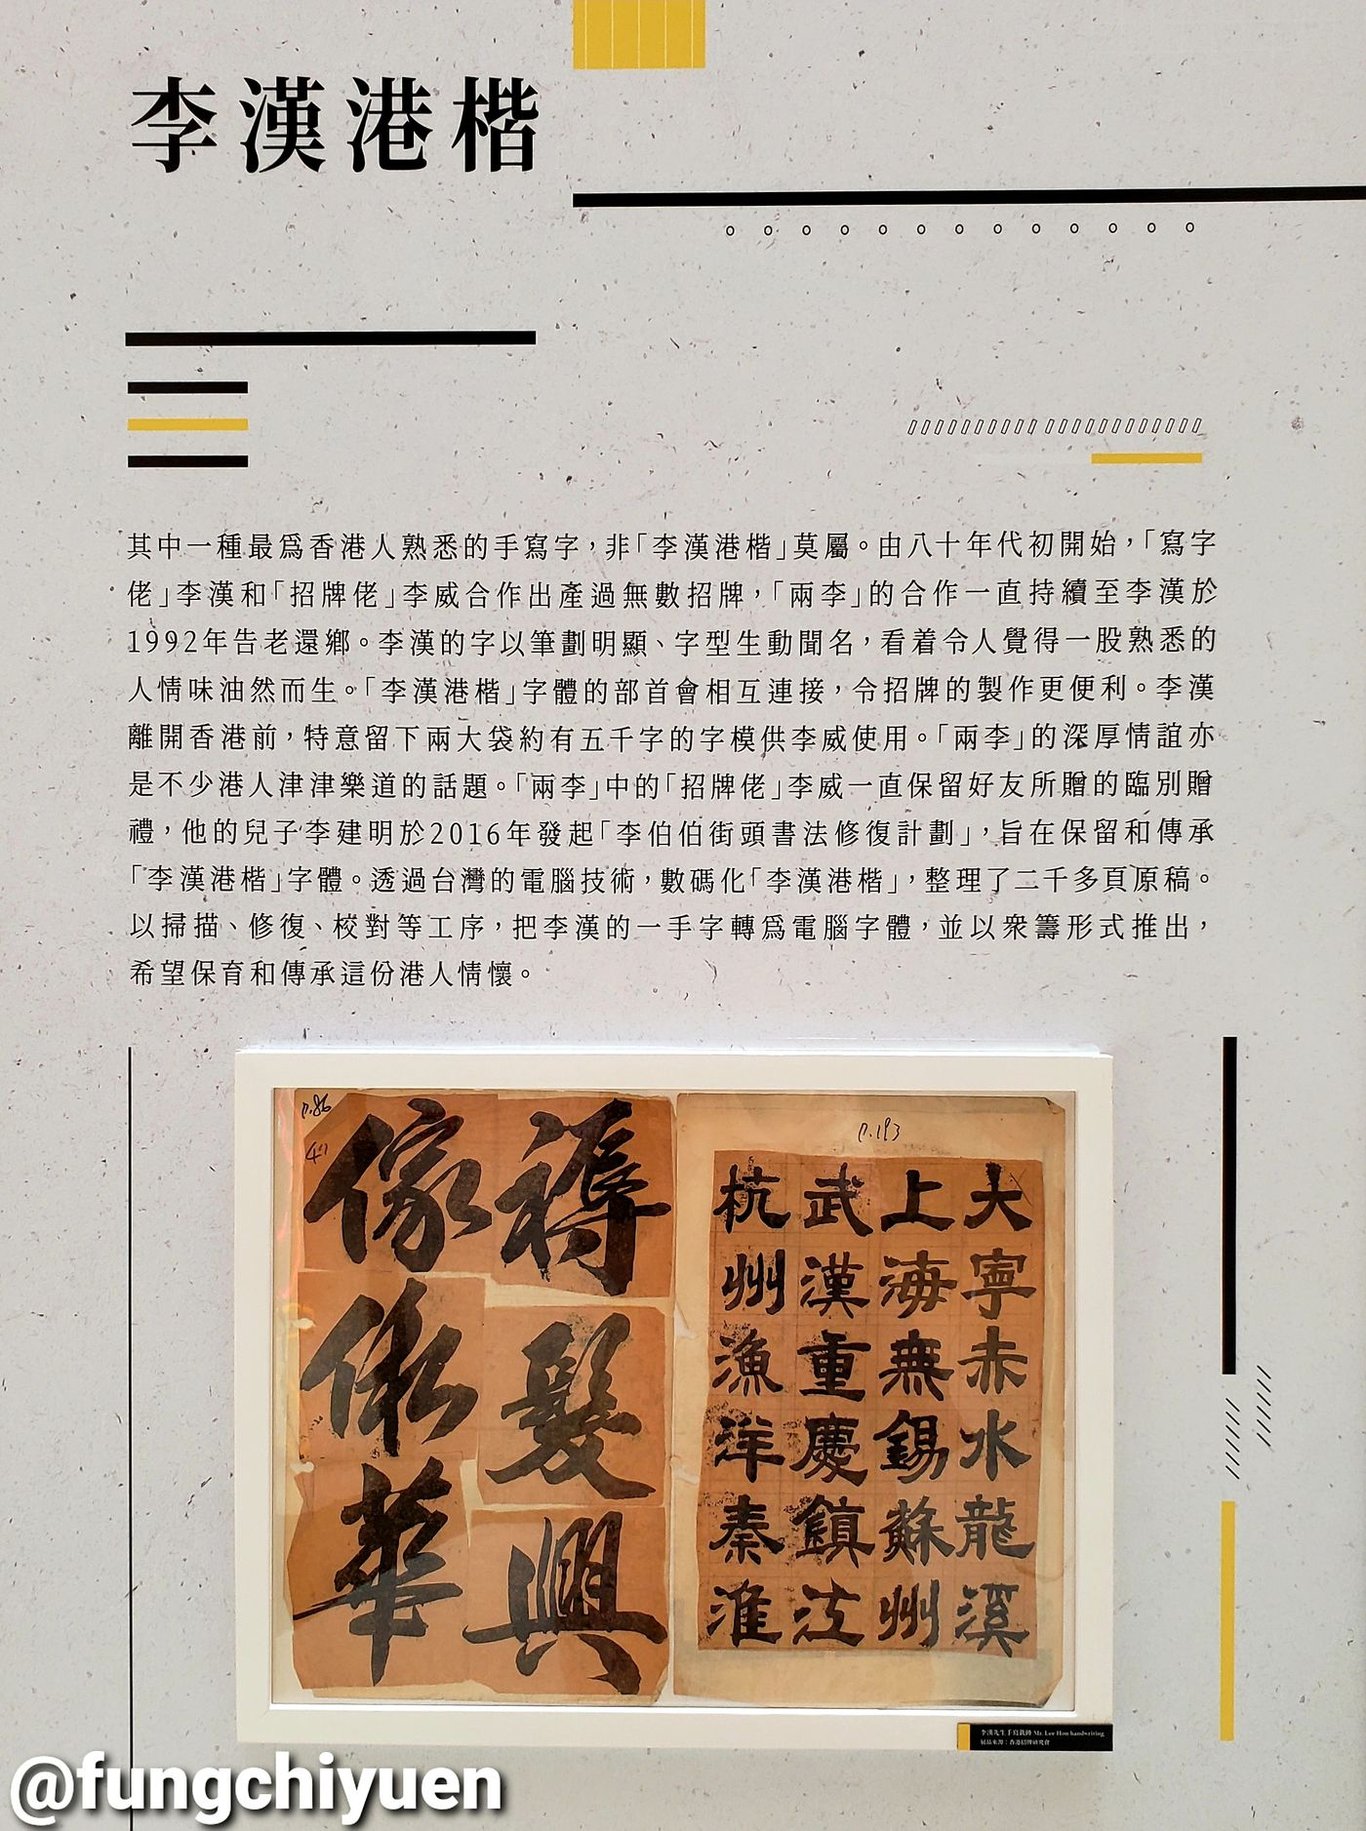 李漢港楷
其中一種最爲香港人熟悉的手寫字，非「李漢港楷」莫屬。由八十年代初開始，「寫字
佬」李漢和「招牌佬」李威合作出產過無數招牌，「兩李」的合作一直持續至李漢於
1992年告老還鄉。李漢的字以筆劃明顯、字型生動聞名，看着令人覺得一股熟悉的
人情味油然而生。「李漢港楷」字體的部首會相互連接，令招牌的製作更便利。李漢
離開香港前，特意留下兩大袋約有五千字的字模供李威使用。「兩李」的深厚情誼亦
是不少港人津津樂道的話題。「兩李」中的「招牌佬」李威一直保留好友所贈的臨別贈
禮，他的兒子李建明於2016年發起「李伯伯街頭書法修復計劃」，旨在保留和傳承
「李漢港楷」字體。透過台灣的電腦技術，數碼化「李漢港楷」，整理了二千多頁原稿。
以掃描、修復、校對等工序，把李漢的一手字轉爲電腦字體，並以衆籌形式推出，
希望保育和傳承這份港人情懷。
P.86
褥髮興
傢華
P.193
大寧赤水龍溪
上海無錫蘇州
武漢重慶鎮江
杭州漁洋秦淮
李漢先生手寫真跡 Mr. Lee Hon handwriting
展品來源：香港招牌研究會
@fungchiyuen